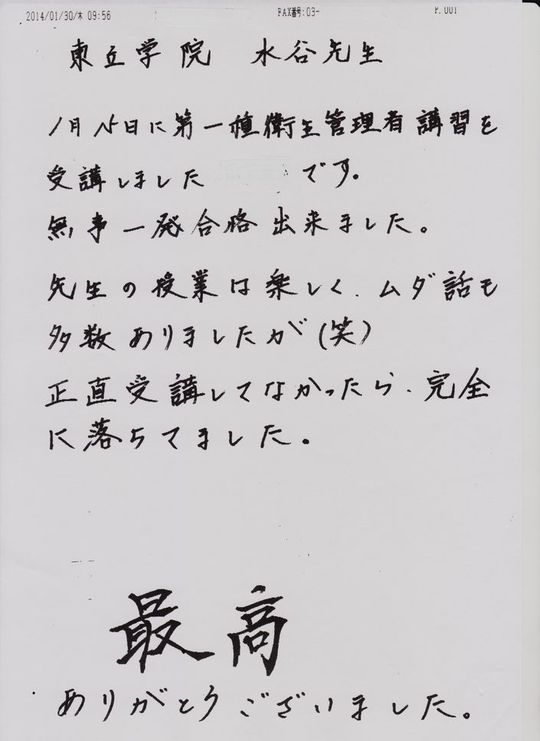 2014/01/30/木 09:56 FAX番号:03- P.001
東立学院 水谷先生
1月15日に第一種衛生管理者講習を
受講しました です。
無事一発合格出来ました。
先生の授業は楽しく、ムダ話も
多数ありましたが(笑)
正直受講してなかったら、完全
に落ちてました。
最高
ありがとうございました。